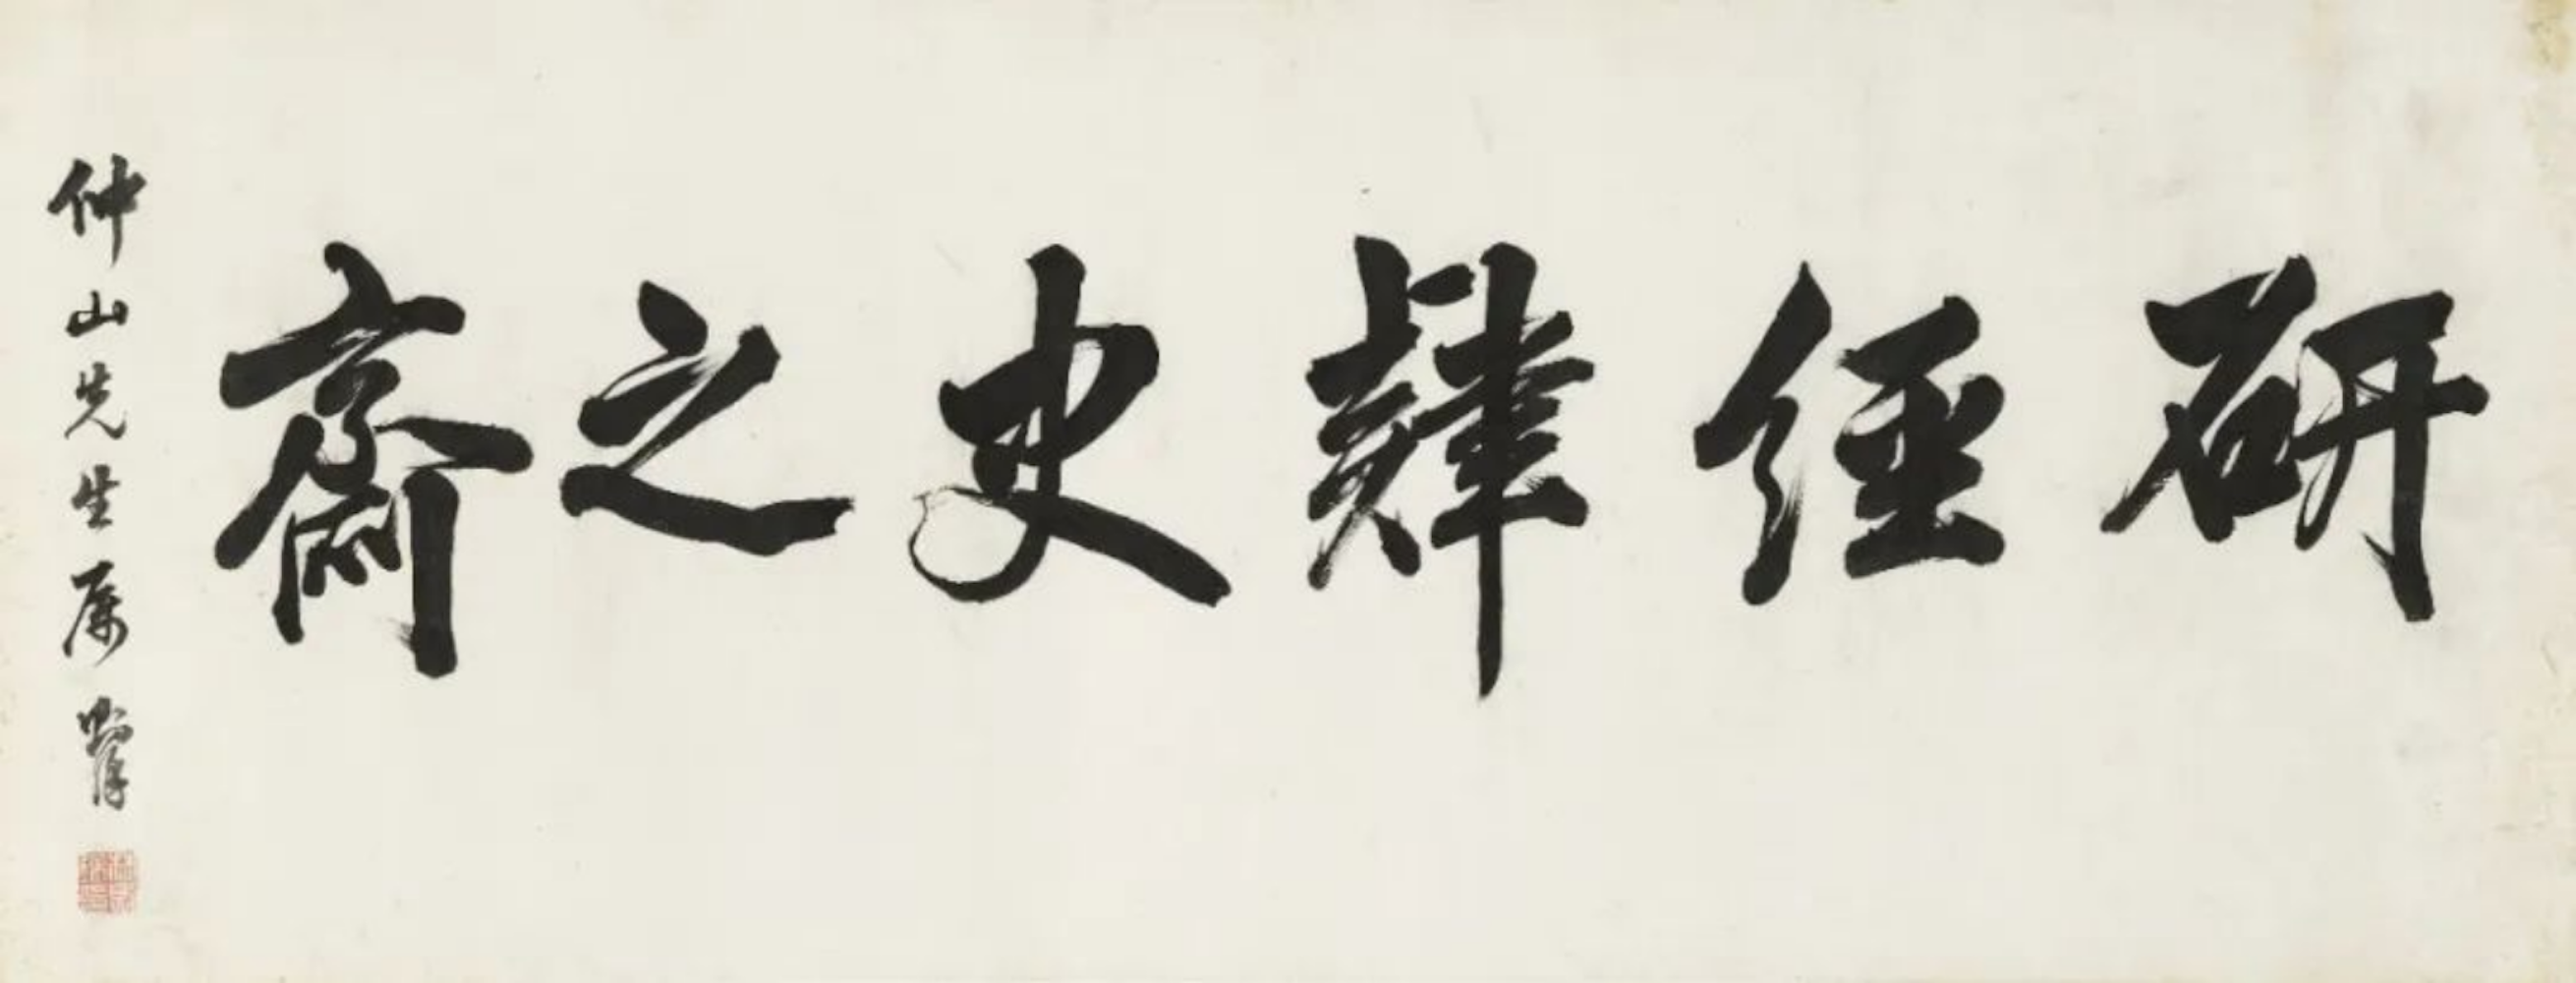 研經肄史之齋
仲山先生屬